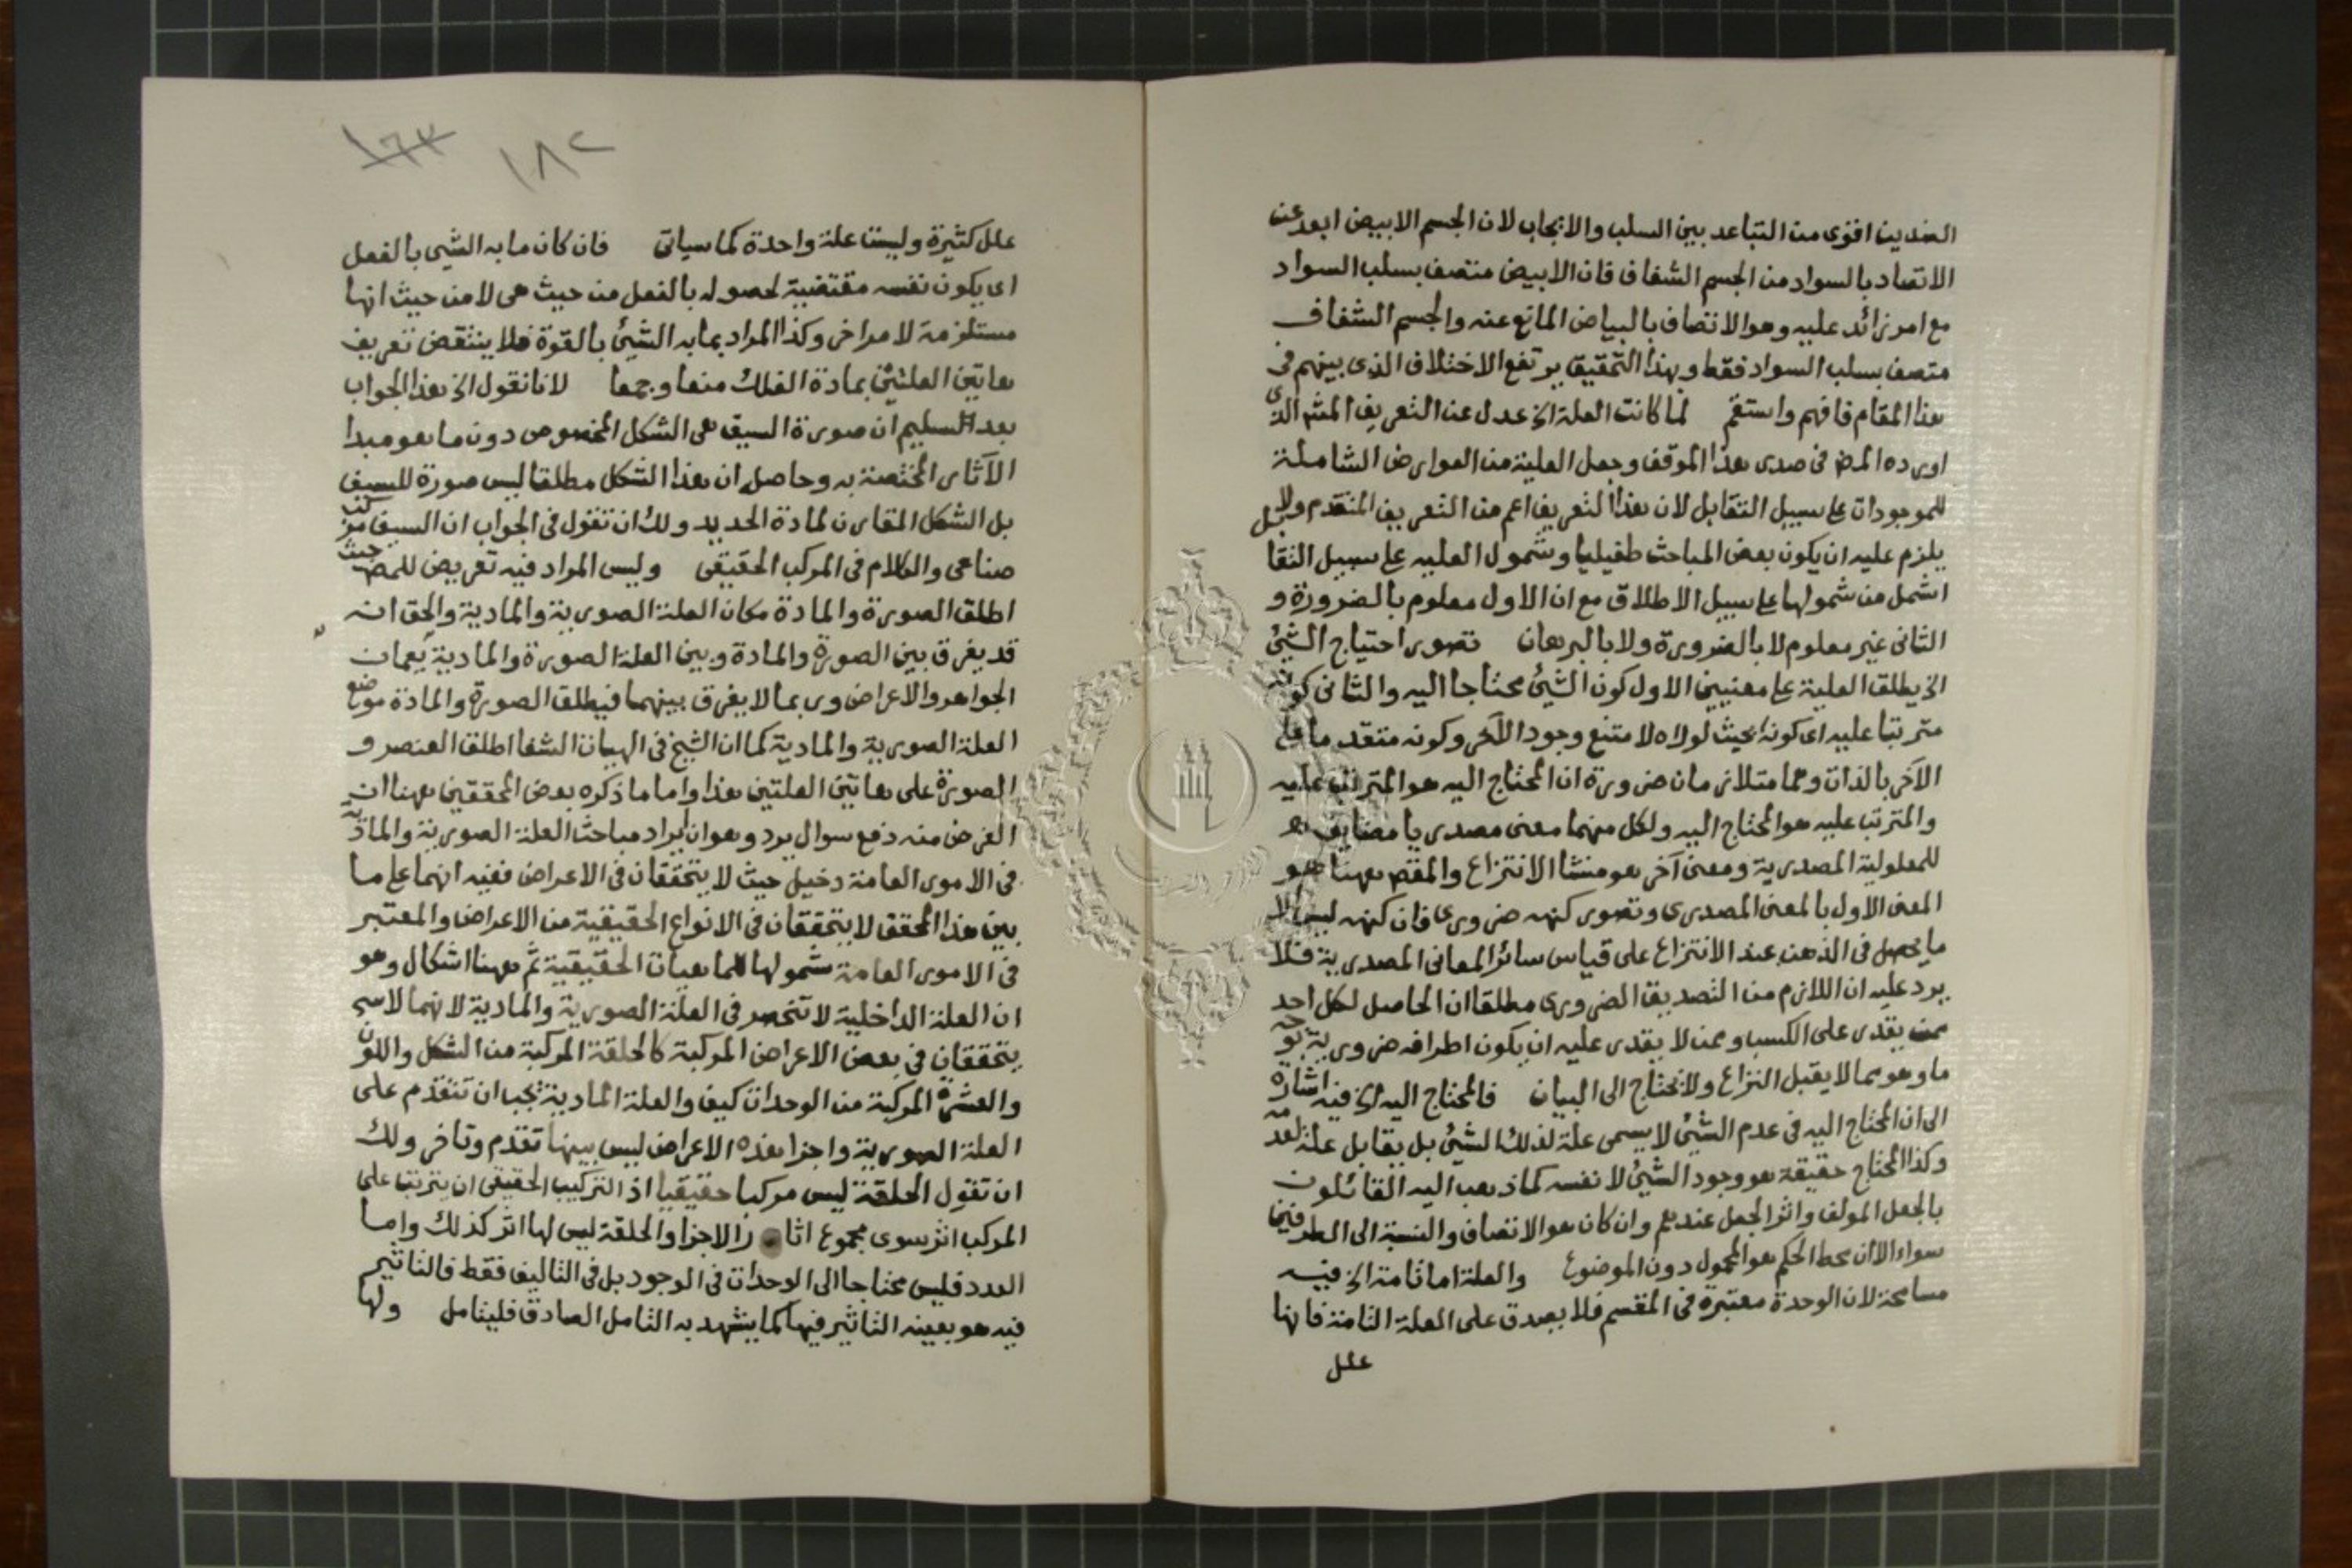 الضدين اقوى من التباعد بين السلب والايجاب لان الجسم الابيض ابعد عن
الاتصاد بالسواد من الجسم الشفاف فان الابيض متصف بسلب السواد
مع امر زائد عليه وهو الاتصاف بالبياض المانع عنه والجسم الشفاف
متصف بسلب السواد فقط وبهذا التحقيق يرتفع الاختلاف الذى بينهم فى
هذا المقام فافهم واستقم لما كانت العلة الخ عدل عن التعريف المشه الذى
اورده المص فى صدر هذا الموقف وجعل العلية من العوارض الشاملة
للموجودات على سبيل التقابل لان هذا التعريف اعم من التعريف المتقدم ولا
يلزم عليه ان يكون بعض المباحث طفيليا وشمول العليه على سبيل التقابل
اشمل من شمولها على سبيل الاطلاق مع ان الاول معلوم بالضرورة و
الثانى غير معلوم لا بالضرورة ولا بالبرهان تصور احتياج الشئ
الخ يطلق العلية على معنيين الاول كون الشئ محتاجا اليه والثانى كونه
مترتبا عليه اى كونه بحيث لولاه لامتنع وجود الآخر وكونه متقدما على
الآخر بالذات وهما متلازمان ضرورة ان المحتاج اليه هو المترتب عليه
والمترتب عليه هو المحتاج اليه ولكل منهما معنى مصدريا مضايف هو
للمعلولية المصدرية ومعنى آخر هو منشا الانتزاع والمقص ههنا هو
المعنى الاول بالمعنى المصدرى وتصور كنهه ضرورى فان كنهه ليس الا
ما يحصل فى الذهن عند الانتزاع على قياس سائر المعانى المصدرية فلا
يرد عليه ان اللازم من التصديق الضرورى مطلقا ان الحاصل لكل احد
ممن يقدر على الكسب وممن لا يقدر عليه ان يكون اطرافه ضرورية بوجه
ما وهو مما لا يقبل النزاع ولا يحتاج الى البيان فالمحتاج اليه الخ فيه اشارة
الى ان المحتاج اليه فى عدم الشئ لا يسمى علة لذلك الشئ بل يقابل علة لعدمه
وكذا المحتاج حقيقة هو وجود الشئ لا نفسه كما ذهب اليه القائلون
بالجعل المولف واثر الجعل عندهم وان كان هو الاتصاف والنسبة الى الطرفين
سواء الا ان محط الحكم هو المحمول دون الموضوع والعلة اما تامة الخ فيه
مسامحة لان الوحدة معتبرة فى المقسم فلا يصدق على العلة التامة فانها
علل
١٨٢ ١٦٣
علل كثيرة وليست علة واحدة كما سياتى فان كان ما به الشئ بالفعل
اى يكون نفسه مقتضية لحصوله بالفعل من حيث هى لا من حيث انها
مستلزمة لامر اخر وكذا المراد بما به الشئ بالقوة فلا ينتقض تعريف
هاتين العلتين بمادة الفلك منعا وجمعا لانا نقول الخ هذا الجواب
بعد تسليم ان صورة السيف هى الشكل المخصوص دون ما هو مبدا
الآثار المختصة به وحاصله ان هذا الشكل مطلقا ليس صورة للسيف
بل الشكل المقارن لمادة الحديد ولك ان تقول فى الجواب ان السيف مركب
صناعى والكلام فى المركب الحقيقى وليس المراد فيه تعريض للمص حيث
اطلق الصورة والمادة مكان العلة الصورية والمادية والحق انه
قد يفرق بين الصورة والمادة وبين العلة الصورة والمادية يعمان
الجواهر والاعراض وربما لا يفرق بينهما فيطلق الصورة والمادة موضع
العلة الصورية والمادية كما ان الشيخ فى الهيات الشفا اطلق العنصر و
الصورة على هاتين العلتين هذا واما ما ذكره بعض المحققين ههنا ان
الغرض منه دفع سوال يرد وهو ان ايراد مباحث العلة الصورية والمادية
فى الامور العامة دخيل حيث لا يتحققان فى الاعراض ففيه انهما على ما
بين هذا المحقق لا يتحققان فى الانواع الحقيقية من الاعراض والمعتبر
فى الامور العامة شمولها للماهيات الحقيقية ثم ههنا اشكال وهو
ان العلة الداخلية لا تنحصر فى العلة الصورية والمادية لانهما لا
يتحققان فى بعض الاعراض المركبة كالخلقة المركبة من الشكل واللون
والعشرة المركبة من الوحدات كيف والعلة المادية يجب ان تتقدم على
العلة الصورية واجزا هذه الاعراض ليس بينها تقدم وتاخر ولك
ان تقول الخلقة ليس مركبا حقيقيا اذ التركيب الحقيقى ان يترتب على
المركب اثر سوى مجموع اثار الاجزا والخلقة ليس لها اثر كذلك واما
العدد فليس محتاجا الى الوحدات فى الوجود بل فى التاليف فقط فالتاثير
فيه هو بعينه التاثير فيها كما يشهد به التامل الصادق فليتامل ولها